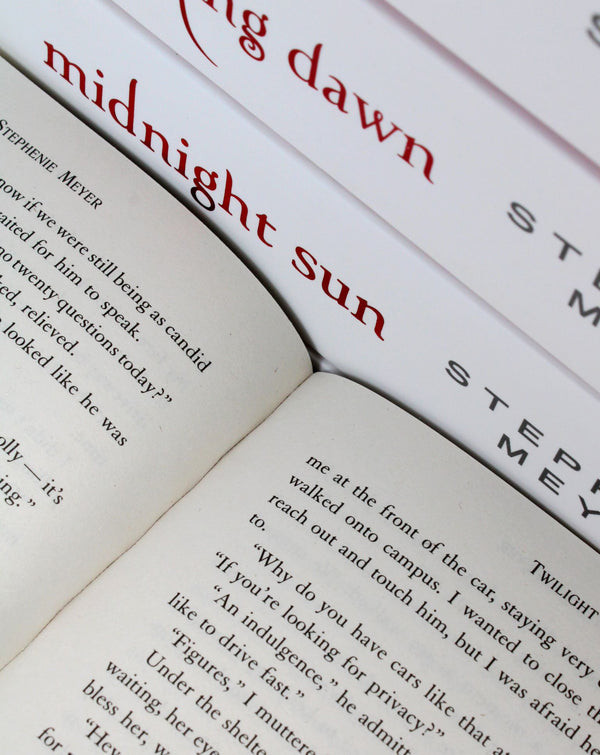 ng dawn
STE
M
midnight sun
STEPH
MEY
STEPHENIE MEYER
now if we were still being as candid
waited for him to speak.
no twenty questions today?”
ked, relieved.
looked like he was
olly — it’s
ing.”
TWILIGHT
me at the front of the car, staying very
walked onto campus. I wanted to close th
reach out and touch him, but I was afraid he
to.
“Why do you have cars like that a
“If you’re looking for privacy?”
“An indulgence,” he admitt
like to drive fast.”
“Figures,” I muttere
Under the shelte
waiting, her eye
bless her, w
“Hey
for